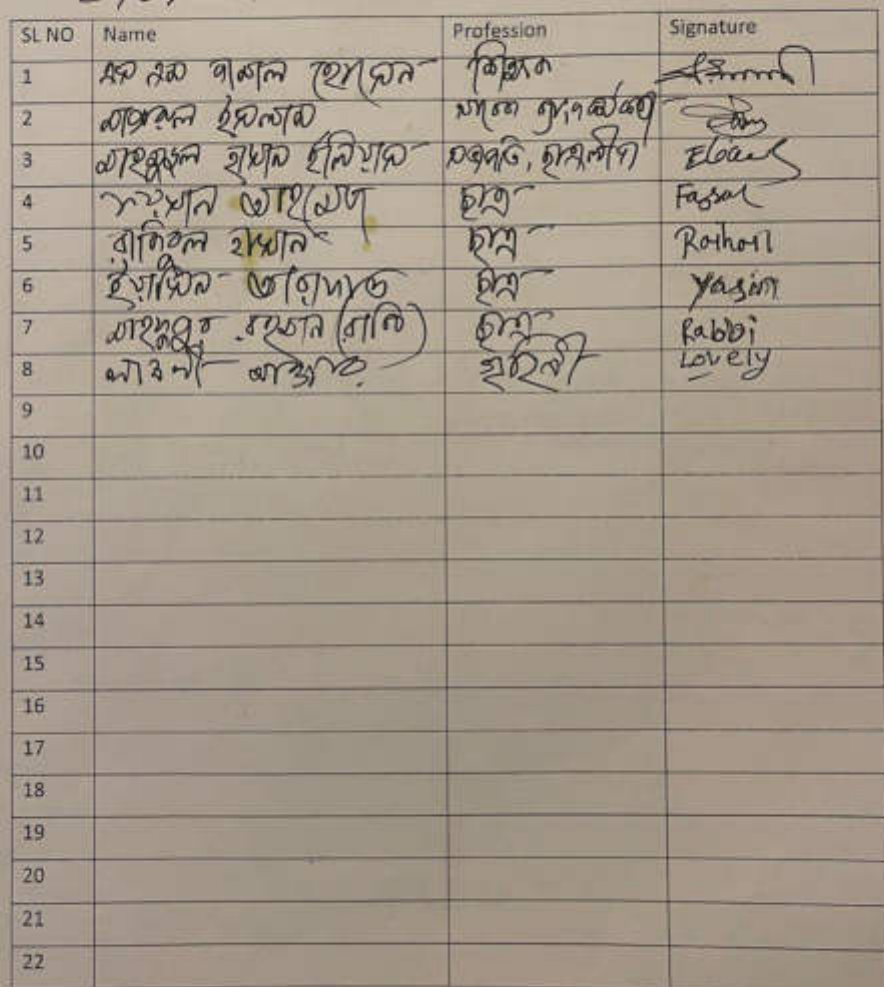 SL NO Name Profession Signature
1 এম এম কামাল হোসেন শিক্ষক
2 ইসলাম সাবেক
3 মাহমুদুল হাসান ইলিয়াস সভাপতি, ছাত্রলীগ
4 ফয়সাল আহমেদ ছাত্র Faysal
5 রাকিবুল হাসান ছাত্র Raihan
6 ইয়াসিন আরাফাত ছাত্র Yasin
7 মাহফুজুর রহমান (রাব্বি) ছাত্র Rabbi
8 লাভলী আক্তার গৃহিনী Lovely
9
10
11
12
13
14
15
16
17
18
19
20
21
22